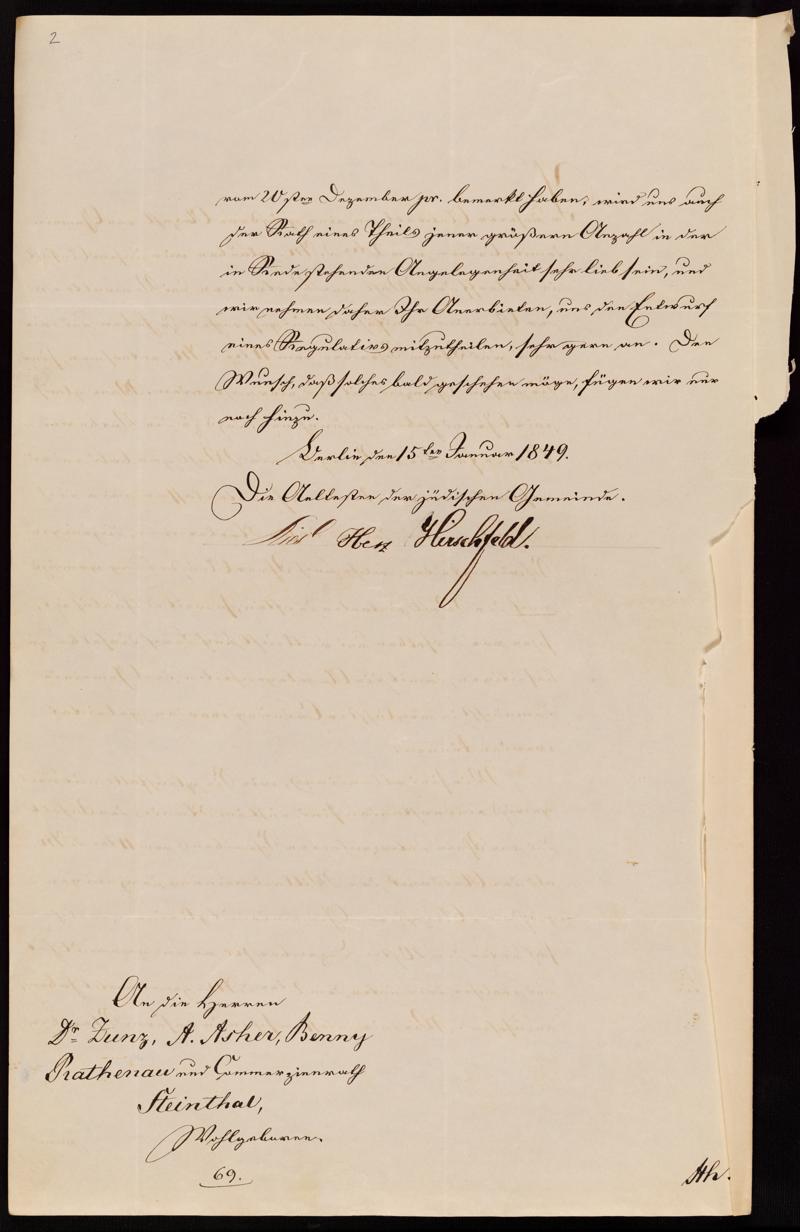 2
vom 20sten Dezember pr. bemerkt haben, wird uns auch
der Rath eines Theils jener größern Anzahl in der
in Rede stehenden Angelegenheit sehr lieb sein, und
wir nehmen daher Ihr Anerbieten, uns den Entwurf
eines Regulativs mitzutheilen, sehr gern an. Den
Wunsch, daß solches bald geschehen möge, fügen wir nur
noch hinzu.
Berlin den 15ten Januar 1849.
Die Aeltesten der jüdischen Gemeinde.
Herz Hirschfeld.
An die Herren
Dr. Zunz, A. Asher, Benny
Rathenau und Commerzienrath
Steinthal,
Wohlgeboren.
69.